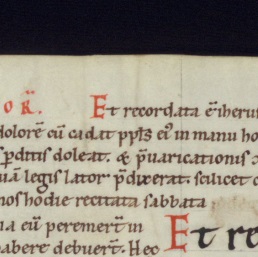 OR. Et recordata ē iherus
dolorē cū cadat ppłs ei᷒ in manu ho
s pditis doleat. & p̄uaricationis
uā legis lator p̄dixerat. scilicet
nos hodie recitata sabbata
na eū peremer̄t in
habere debuer̄t. Heo Et re